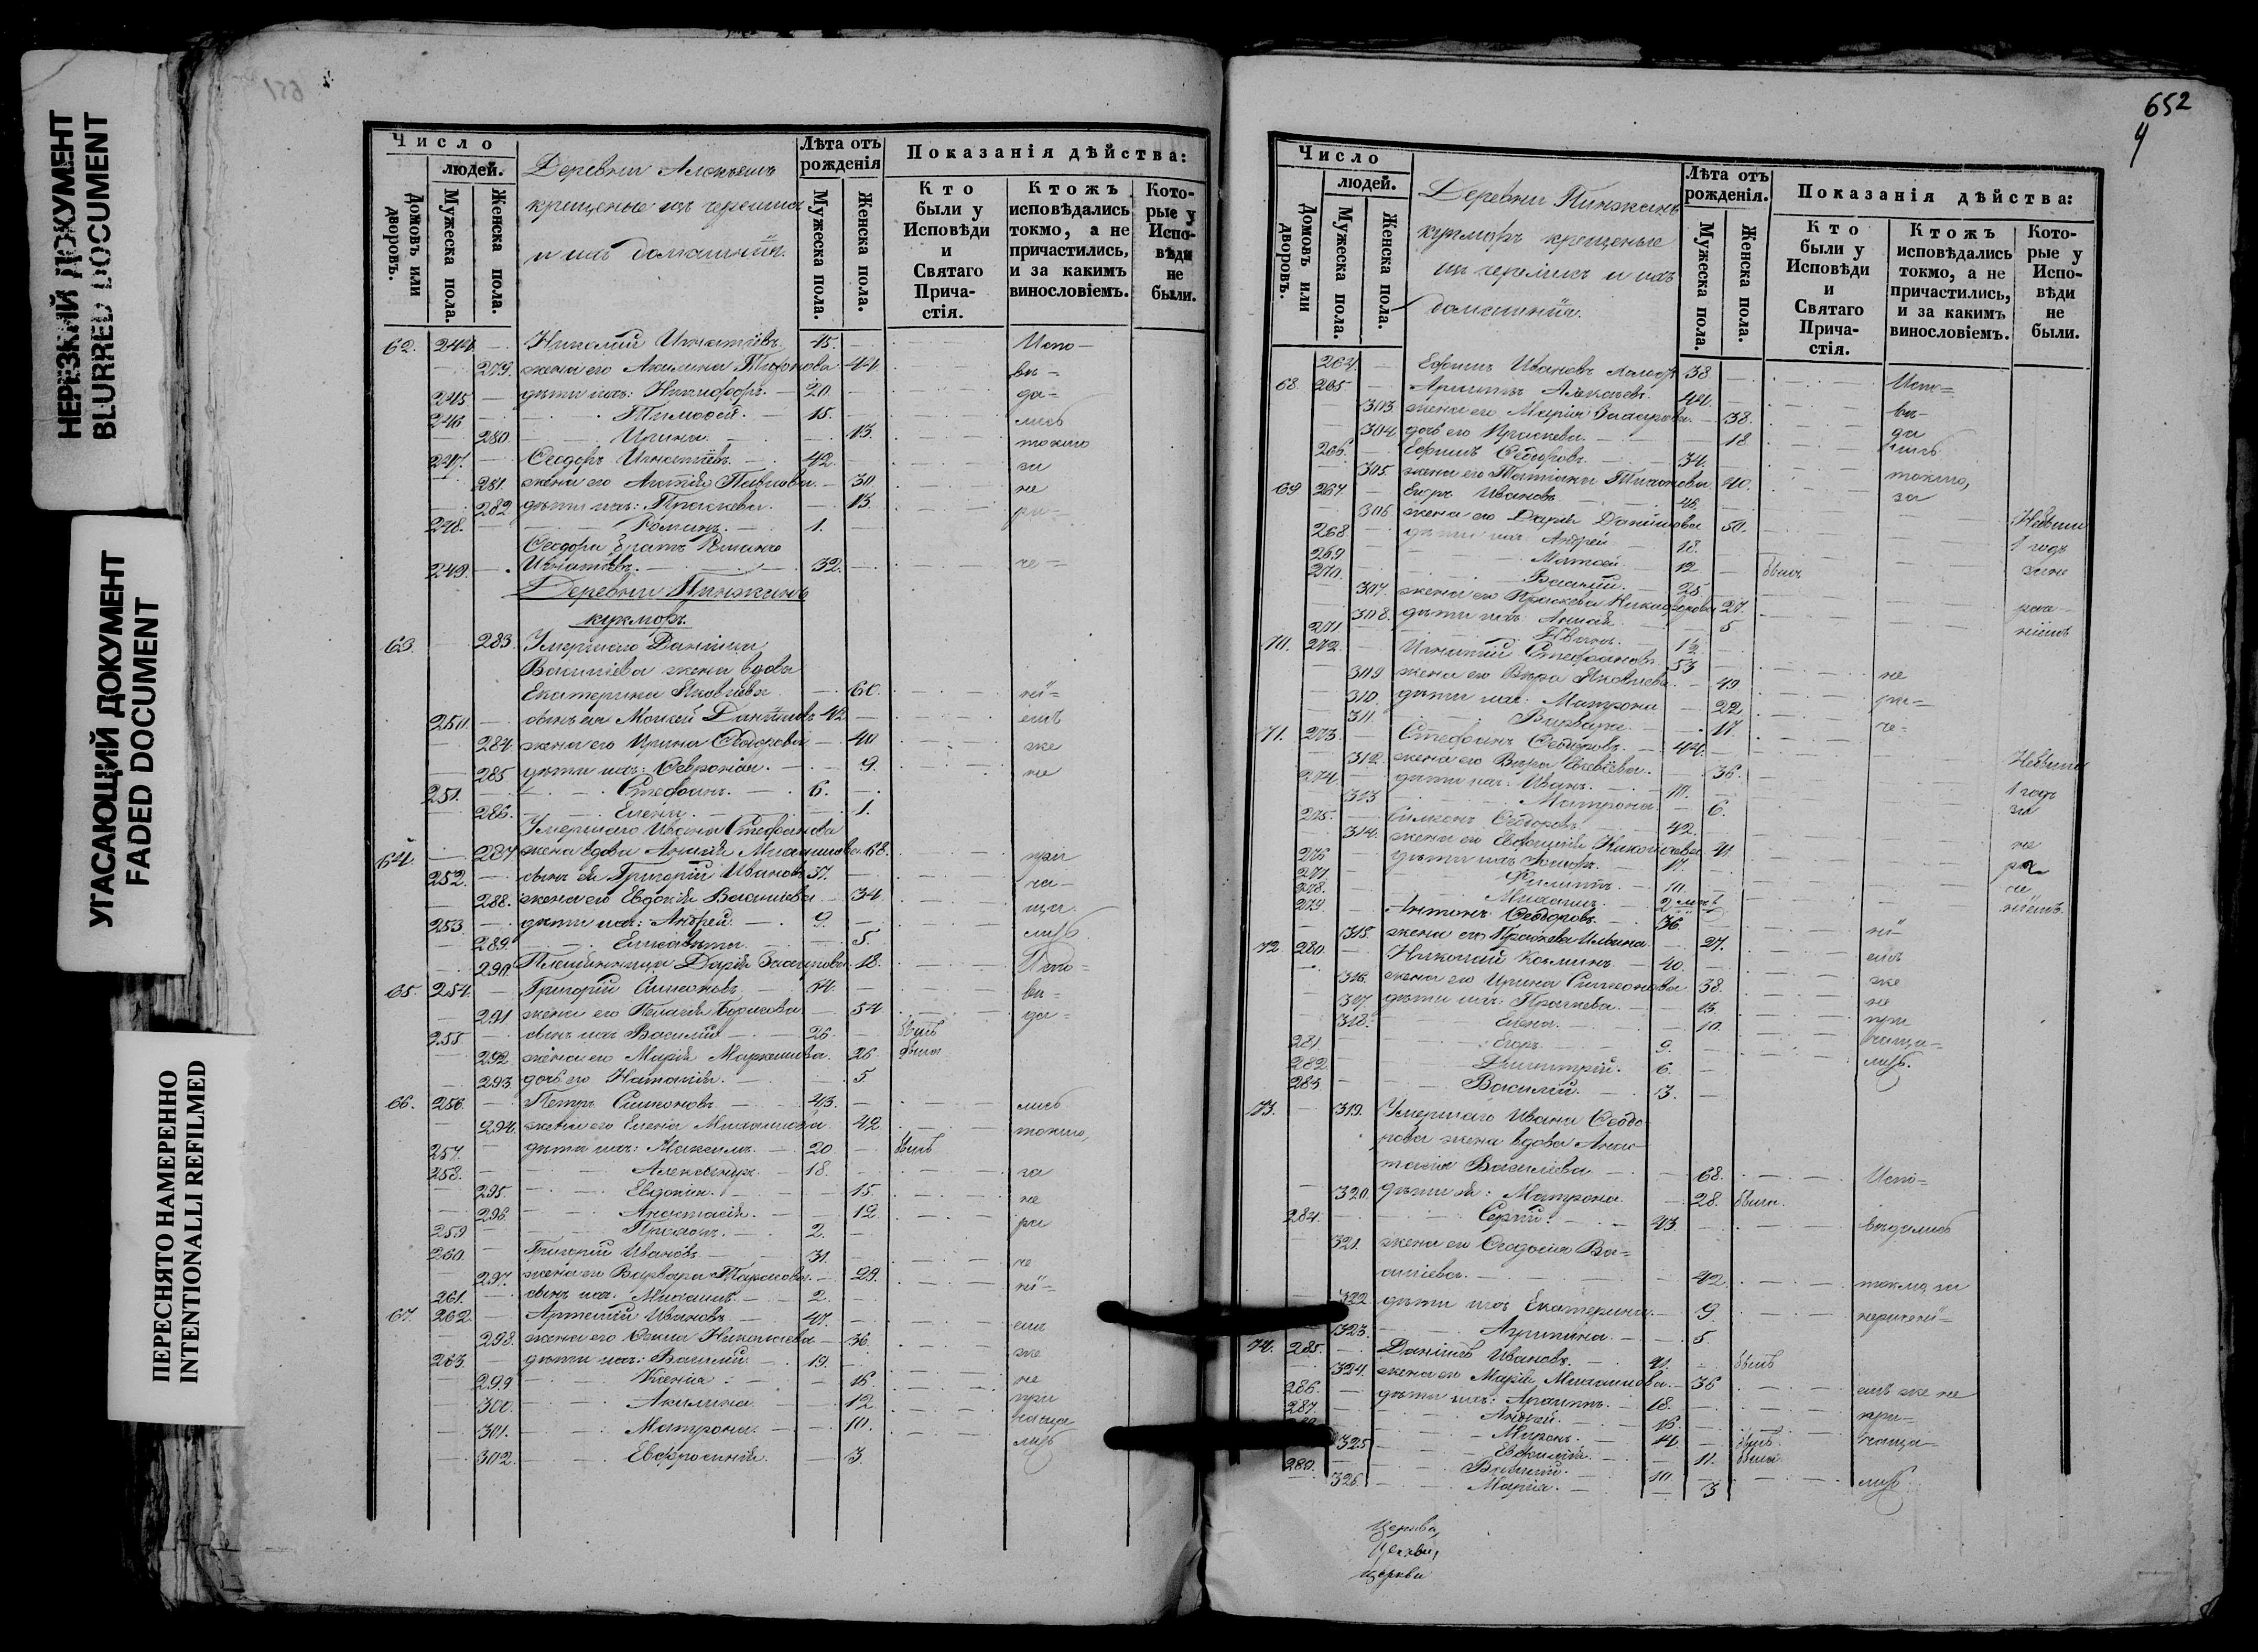 НЕРЕЗКИЙ ДОКУМЕНТ
BLURRED DOCUMENT
УГАСАЮЩИЙ ДОКУМЕНТ
FADED DOCUMENT
ПЕРЕСНЯТО НАМЕРЕННО
INTENTIONALLI REFILMED
Число
людей.
Домовъ или дворовъ.
Мужеска пола.
Женска пола.
Деревни
крещеные изъ черемисъ
и ихъ домашнiй.
Лѣта отъ рожденія
Мужеска пола.
Женска пола.
Показанія дѣйства:
Кто были у Исповѣди и Святаго Прича-стія.
Ктожъ исповѣдались токмо, а не причастились, и за какимъ винословіемъ.
Кото-рые у Испо-вѣди не были.
62. 244. Николай Игнатіевъ 45. Испо-
279. жена его Акилина 44. вѣ-
245 дѣти ихъ: Никифоръ. 20. да-
246 Тимоѳей. 15. лись
280. Ирина. 13. токмо
247. Ѳеодоръ Игнатіевъ. 42. за
281 жена его Павлова. 30. не
282 дѣти ихъ: Праскева. 13. ра-
248. Романъ. 1.
Ѳеодора братъ
249. Игнатіевъ. 32. че-
Деревни Пинжанъ
кукморъ.
63. 283. Умершаго Даніила
Василіева жена вдова
Екатерина Яковлева 60. ні-
250. сынъ ея Моисей Даніиловъ 42 емъ
284. жена его Ирина Ѳеодорова 40 же
285 дѣти ихъ: Ѳевронія. 9. не
251. Стефанъ. 6.
286. Елена. 1.
Умершаго Ивана Стефанова
64. 287 жена вдова Михаилова 68. при
252. сынъ ея Григорій Ивановъ 37. ча-
288. жена его Евдокія Василіева 34 ща-
253. дѣти ихъ: Андрей. 9. лись
289. Елисавета. 5.
290. Дарія 18. Испо-
65. 254. Григорій Симеоновъ 74. вѣ-
291 жена его Пелагея Борисова 54 да-
255. сынъ ихъ Василій 26 былъ
292. жена его Марія 26 была
293 дочь его Наталія. 5.
66. 256. Петръ Симеоновъ 43. лись
294. жена его Елена Михаилова 42 токмо,
257. дѣти ихъ: Максимъ. 20 былъ
258. Александръ. 18. за
295. Евдокія. 15. не
296. Анастасія. 12. ра
259 2.
260. Григорій Ивановъ. 31. че
297. жена его Варвара Тарасова. 29. ні-
261. сынъ ихъ Михаилъ 2.
67. 262. Артемій Ивановъ 47. емъ
298. жена его Николаева 36. же
263. дѣти ихъ: Василій. 19.
299. Ксенія 16. не
300. Акилина 12. при
301. Матрона. 10. чаща
302. Евфросинія. 3. лись
652
4
Число
людей.
Домовъ или дворовъ.
Мужеска пола.
Женска пола.
Деревни Пинжанъ
кукморъ крещеные
изъ черемисъ и ихъ
домашнiй.
Лѣта отъ рожденія.
Мужеска пола.
Женска пола.
Показанія дѣйства:
Кто были у Исповѣди и Святаго Прича-стія.
Ктожъ исповѣдались токмо, а не причастились, и за какимъ винословіемъ.
Кото-рые у Испо-вѣди не были.
264. Ефимъ Ивановъ 38
68. 265. Алексѣевъ. 44. Испо-
303. жена его Марія 38. вѣ-
304. дочь его Праскева. 18. да
266. Ефимъ Ѳедоровъ. 34. лись
305. жена его Татіана 40. токмо,
69 267. Егоръ Ивановъ 48. за
306 жена его Дарія Даніилова 50. Небыли
268. дѣти ихъ Андрей 18. 1 годъ
269 Матѳей 12
270. Василій. 25. былъ
307. жена его Праскева Никифорова 27.
308. дѣти ихъ: 5
271. Иванъ. 1½.
70. 272. Игнатій Стефановъ 53
309 жена его Вѣра Яковлева. 49 не
310. дѣти ихъ: Матрона 22. ра-
311. Варвара. 17. че-
71. 273. Стефанъ Ѳедоровъ. 44.
312. жена его Вѣра 36. Небыли
274. дѣти ихъ: Иванъ. 10. 1 годъ
313 Матрона. 6. за
275. Симеонъ Ѳедоровъ. 42.
314. жена его Николаева 41. не
276 дѣти ихъ 17. ра
277. Филиппъ. 10. че
278. Михаилъ. ніемъ.
279 Антонъ Ѳеодоровъ. 36. ні-
315. жена его Праскева Ильина. 27. емъ
72 280. Николай Козминъ. 40.
316. жена его Ирина Симеонова 38. же
317. дѣти ихъ: Праскева. 13. не
318. Елена. 10. при
281. Егоръ 9. чаща-
282. Димитрій. 6. лись.
283. Василій. 3.
73. 319. Умершаго Ивана Ѳеодо-
рова жена вдова Анас-
тасія Василіева 68. Испо-
320. дѣти ея: Матрона. 28. была.
284. Сергій. 43. вѣдались
321. жена его Ѳедосія Ва-
силіева. 42. токмо, за
322. дѣти ихъ Екатерина. 9. нераченi-
323. Агрипина. 5
74. 285. Даніилъ Ивановъ. 41. былъ
324. жена его Марія Михаилова. 36 емъ же не
286. дѣти ихъ: 18. при-
287. Андрей. 16.
Миронъ. 14. былъ. чаща-
325 Евфимія. 11. была
289. Василій. 10.
326. Марія. 3 лись.
Церкви,
Церкви,
церкви